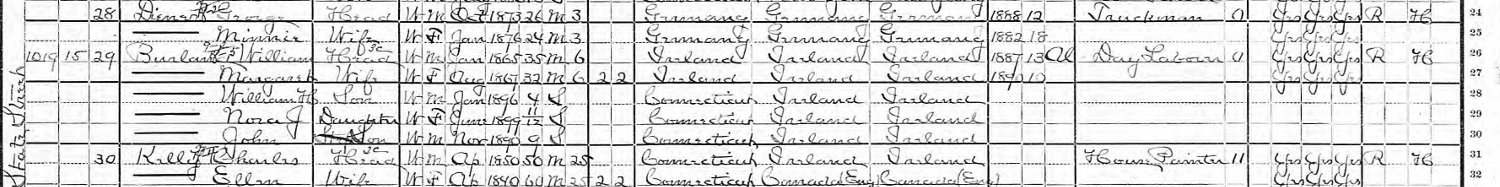 28 George Head W M Oct 1873 26 M 3 Germany Germany Germany 1888 12 Truckman 0 Yes Yes Yes R H 24
Minnie Wife W F Jan 1876 24 M 3 Germany Germany Germany 1882 18 Yes Yes Yes 25
1019 15 29 William Head W M Jan 1865 35 M 6 Ireland Ireland Ireland 1887 13 Al Day Laborer 0 Yes Yes Yes R H 26
Margaret Wife W F Aug 1867 32 M 6 2 2 Ireland Ireland Ireland 1890 10 Yes Yes Yes 27
William H Son W M Jan 1896 4 S Connecticut Ireland Ireland 28
Nora J Daughter W F June 1899 11/12 S Connecticut Ireland Ireland 29
John Son W M Nov 1890 9 S Connecticut Ireland Ireland 30
30 Kelly Charles Head W M Ap 1850 50 M 25 Connecticut Ireland Ireland House Painter Yes Yes Yes R H 31
Ellen Wife W F Ap 1840 60 M 25 2 2 Connecticut Canada (Eng) Canada (Eng) Yes Yes Yes 32
State Street